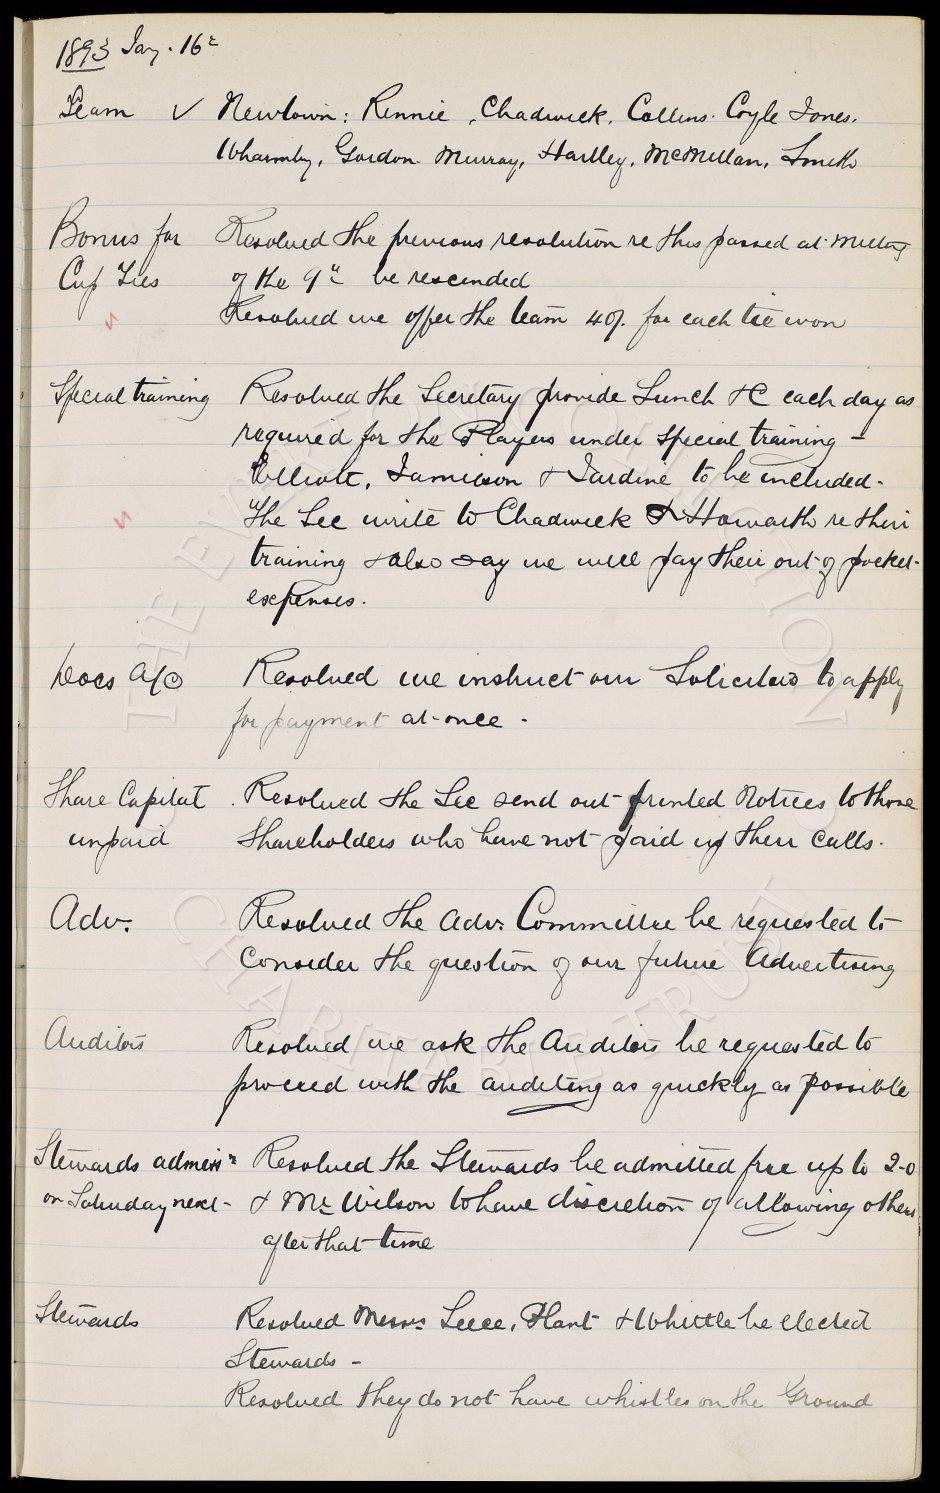 1893 Jany. 16th
Team ✓ Newtown: Rennie, Chadwick, Collins. Coyle Jones.
Wharmby, Gordon Murray, Hartley, McMillan, Smith
Bonus for Resolved the previous resolution re this passed at meeting
Cup Ties of the 9th be rescinded
Resolved we offer the team 40/. for each tie won
Special training Resolved the Secretary provide Lunch &c each day as
required for the Players under special training -
Elliott, Jamieson & Jardine to be included.
The Sec write to Chadwick & Howarth re their
training & also say we will pay their out of pocket
expenses.
Docs a/c Resolved we instruct our Solicitors to apply
for payment at once.
Share Capital Resolved the Sec send out printed notices to those
unpaid Shareholders who have not paid up their calls.
Adv. Resolved the adv. Committee be requested to
consider the question of our future Advertising
Auditors Resolved we ask the Auditors be requested to
proceed with the auditing as quickly as possible
Stewards admissn Resolved the Stewards be admitted free up to 2-0
on Saturday next - & Mr Wilson to have discretion of allowing others
after that time
Stewards Resolved Messrs Leece, Plant & Whittle be elected
Stewards -
Resolved they do not have whistles on the Ground
THE EVERTON COLLECTION
CHARITABLE TRUST